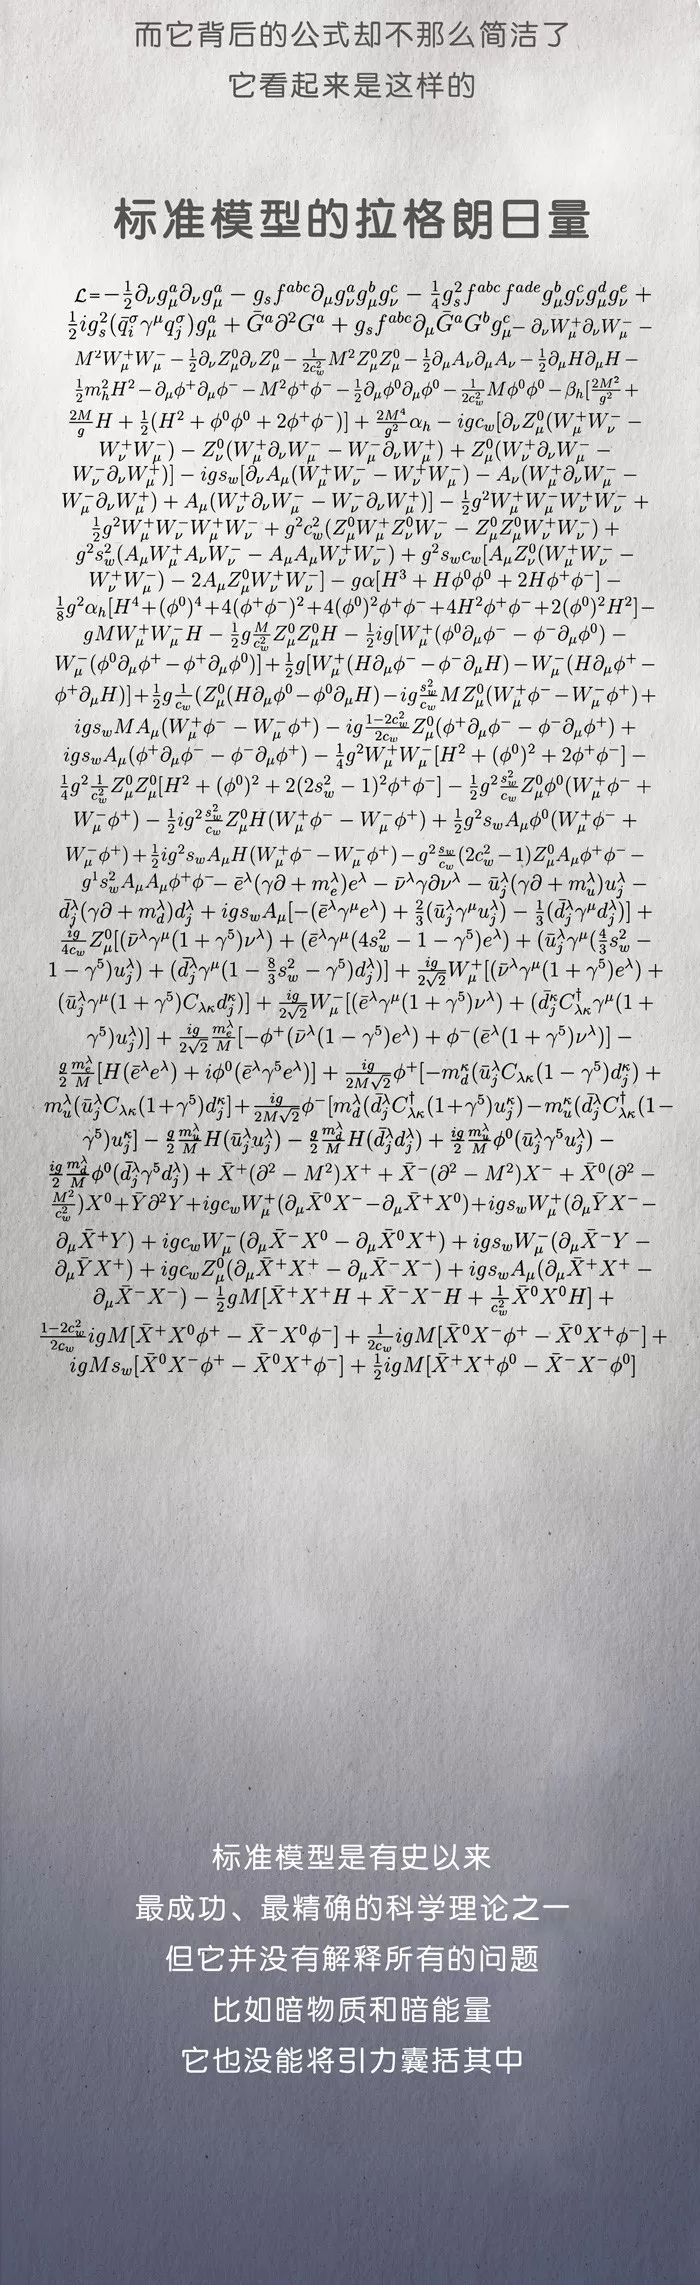 而它背后的公式却不那么简洁了
它看起来是这样的
标准模型的拉格朗日量
ℒ=−½∂_νg^a_μ∂_νg^a_μ − g_sf^{abc}∂_μg^a_νg^b_μg^c_ν − ¼g²_sf^{abc}f^{ade}g^b_μg^c_νg^d_μg^e_ν +
½ig²_s(q̄^σ_iγ^μq^σ_j)g^a_μ + Ḡ^a∂²G^a + g_sf^{abc}∂_μḠ^aG^bg^c_μ− ∂_νW^+_μ∂_νW^−_μ −
M²W^+_μW^−_μ − ½∂_νZ^0_μ∂_νZ^0_μ − \frac{1}{2c²_w}M²Z^0_μZ^0_μ − ½∂_μA_ν∂_μA_ν − ½∂_μH∂_μH −
½m²_hH² − ∂_μϕ^+∂_μϕ^− − M²ϕ^+ϕ^− − ½∂_μϕ^0∂_μϕ^0 − \frac{1}{2c²_w}Mϕ^0ϕ^0 − β_h[\frac{2M²}{g²} +
\frac{2M}{g}H + ½(H² + ϕ^0ϕ^0 + 2ϕ^+ϕ^−)] + \frac{2M⁴}{g²}α_h − igc_w[∂_νZ^0_μ(W^+_μW^−_ν −
W^+_νW^−_μ) − Z^0_ν(W^+_μ∂_νW^−_μ − W^−_μ∂_νW^+_μ) + Z^0_μ(W^+_ν∂_νW^−_μ −
W^−_ν∂_νW^+_μ)] − igs_w[∂_νA_μ(W^+_μW^−_ν − W^+_νW^−_μ) − A_ν(W^+_μ∂_νW^−_μ −
W^−_μ∂_νW^+_μ) + A_μ(W^+_ν∂_νW^−_μ − W^−_ν∂_νW^+_μ)] − ½g²W^+_μW^−_μW^+_νW^−_ν +
½g²W^+_μW^−_νW^+_μW^−_ν + g²c²_w(Z^0_μW^+_μZ^0_νW^−_ν − Z^0_μZ^0_μW^+_νW^−_ν) +
g²s²_w(A_μW^+_μA_νW^−_ν − A_μA_μW^+_νW^−_ν) + g²s_wc_w[A_μZ^0_ν(W^+_μW^−_ν −
W^+_νW^−_μ) − 2A_μZ^0_μW^+_νW^−_ν] − gα[H³ + Hϕ^0ϕ^0 + 2Hϕ^+ϕ^−] −
⅛g²α_h[H⁴+(ϕ^0)⁴+4(ϕ^+ϕ^−)²+4(ϕ^0)²ϕ^+ϕ^−+4H²ϕ^+ϕ^−+2(ϕ^0)²H²]−
gMW^+_μW^−_μH − ½g\frac{M}{c²_w}Z^0_μZ^0_μH − ½ig[W^+_μ(ϕ^0∂_μϕ^− − ϕ^−∂_μϕ^0) −
W^−_μ(ϕ^0∂_μϕ^+ − ϕ^+∂_μϕ^0)] + ½g[W^+_μ(H∂_μϕ^− − ϕ^−∂_μH) − W^−_μ(H∂_μϕ^+ −
ϕ^+∂_μH)] + ½g\frac{1}{c_w}(Z^0_μ(H∂_μϕ^0 − ϕ^0∂_μH) − ig\frac{s²_w}{c_w}MZ^0_μ(W^+_μϕ^− − W^−_μϕ^+) +
igs_wMA_μ(W^+_μϕ^− − W^−_μϕ^+) − ig\frac{1−2c²_w}{2c_w}Z^0_μ(ϕ^+∂_μϕ^− − ϕ^−∂_μϕ^+) +
igs_wA_μ(ϕ^+∂_μϕ^− − ϕ^−∂_μϕ^+) − ¼g²W^+_μW^−_μ[H² + (ϕ^0)² + 2ϕ^+ϕ^−] −
¼g²\frac{1}{c²_w}Z^0_μZ^0_μ[H² + (ϕ^0)² + 2(2s²_w − 1)²ϕ^+ϕ^−] − ½g²\frac{s²_w}{c_w}Z^0_μϕ^0(W^+_μϕ^− +
W^−_μϕ^+) − ½ig²\frac{s²_w}{c_w}Z^0_μH(W^+_μϕ^− − W^−_μϕ^+) + ½g²s_wA_μϕ^0(W^+_μϕ^− +
W^−_μϕ^+) + ½ig²s_wA_μH(W^+_μϕ^− − W^−_μϕ^+) − g²\frac{s_w}{c_w}(2c²_w − 1)Z^0_μA_μϕ^+ϕ^− −
g¹s²_wA_μA_μϕ^+ϕ^− − ē^λ(γ∂ + m^λ_e)e^λ − ν̄^λγ∂ν^λ − ū^λ_j(γ∂ + m^λ_u)u^λ_j −
d̄^λ_j(γ∂ + m^λ_d)d^λ_j + igs_wA_μ[−(ē^λγ^μe^λ) + ⅔(ū^λ_jγ^μu^λ_j) − ⅓(d̄^λ_jγ^μd^λ_j)] +
\frac{ig}{4c_w}Z^0_μ[(ν̄^λγ^μ(1 + γ⁵)ν^λ) + (ē^λγ^μ(4s²_w − 1 − γ⁵)e^λ) + (ū^λ_jγ^μ(\frac{4}{3}s²_w −
1 − γ⁵)u^λ_j) + (d̄^λ_jγ^μ(1 − \frac{8}{3}s²_w − γ⁵)d^λ_j)] + \frac{ig}{2√2}W^+_μ[(ν̄^λγ^μ(1 + γ⁵)e^λ) +
(ū^λ_jγ^μ(1 + γ⁵)C_{λκ}d^κ_j)] + \frac{ig}{2√2}W^−_μ[(ē^λγ^μ(1 + γ⁵)ν^λ) + (d̄^κ_jC^†_{λκ}γ^μ(1 +
γ⁵)u^λ_j)] + \frac{ig}{2√2}\frac{m^λ_e}{M}[−ϕ^+(ν̄^λ(1 − γ⁵)e^λ) + ϕ^−(ē^λ(1 + γ⁵)ν^λ)] −
\frac{g}{2}\frac{m^λ_e}{M}[H(ē^λe^λ) + iϕ^0(ē^λγ⁵e^λ)] + \frac{ig}{2M√2}ϕ^+[−m^κ_d(ū^λ_jC_{λκ}(1 − γ⁵)d^κ_j) +
m^λ_u(ū^λ_jC_{λκ}(1+γ⁵)d^κ_j] + \frac{ig}{2M√2}ϕ^−[m^λ_d(d̄^λ_jC^†_{λκ}(1+γ⁵)u^κ_j) − m^κ_u(d̄^λ_jC^†_{λκ}(1−
γ⁵)u^κ_j] − \frac{g}{2}\frac{m^λ_u}{M}H(ū^λ_ju^λ_j) − \frac{g}{2}\frac{m^λ_d}{M}H(d̄^λ_jd^λ_j) + \frac{ig}{2}\frac{m^λ_u}{M}ϕ^0(ū^λ_jγ⁵u^λ_j) −
\frac{ig}{2}\frac{m^λ_d}{M}ϕ^0(d̄^λ_jγ⁵d^λ_j) + X̄^+(∂² − M²)X^+ + X̄^−(∂² − M²)X^− + X̄^0(∂² −
\frac{M²}{c²_w})X^0 + Ȳ∂²Y + igc_wW^+_μ(∂_μX̄^0X^− − ∂_μX̄^+X^0) + igs_wW^+_μ(∂_μȲX^− −
∂_μX̄^+Y) + igc_wW^−_μ(∂_μX̄^−X^0 − ∂_μX̄^0X^+) + igs_wW^−_μ(∂_μX̄^−Y −
∂_μȲX^+) + igc_wZ^0_μ(∂_μX̄^+X^+ − ∂_μX̄^−X^−) + igs_wA_μ(∂_μX̄^+X^+ −
∂_μX̄^−X^−) − ½gM[X̄^+X^+H + X̄^−X^−H + \frac{1}{c²_w}X̄^0X^0H] +
\frac{1−2c²_w}{2c_w}igM[X̄^+X^0ϕ^+ − X̄^−X^0ϕ^−] + \frac{1}{2c_w}igM[X̄^0X^−ϕ^+ − X̄^0X^+ϕ^−] +
igMs_w[X̄^0X^−ϕ^+ − X̄^0X^+ϕ^−] + ½igM[X̄^+X^+ϕ^0 − X̄^−X^−ϕ^0]
标准模型是有史以来
最成功、最精确的科学理论之一
但它并没有解释所有的问题
比如暗物质和暗能量
它也没能将引力囊括其中